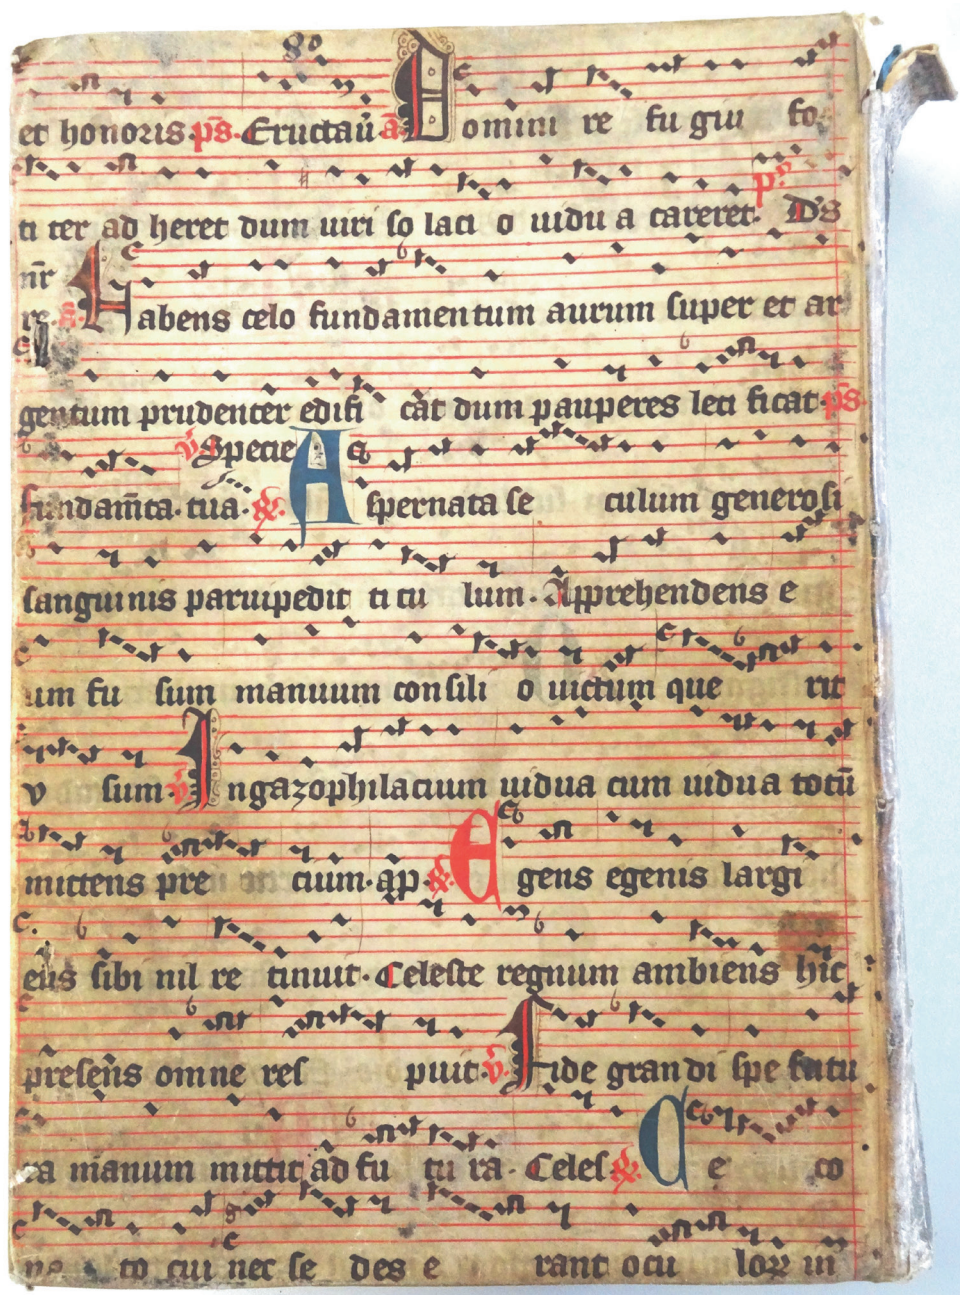 et honoris ps. Eructau̅ a̅ Domini re fu giu fo
ti ter ad heret dum uiri so laci o uidu a careret. p̅s D̅s
nr̅
re. a̅ Habens celo fundamentum aurum super et ar
gentum prudenter edifi cat dum pauperes leti ficat. ps.
fundam̅ta. tua. v̅ Specie ℟. Aspernata se culum generosi
sanguinis paruipedit ti tu lum. Apprehendens e
um fu sum manuum consili o uictum que rit
v sum. v̅ In gazophilacium uidua cum uidua totu̅
mittens pre cium. ap. ℟. Egens egenis largi
ens sibi nil re tinuit. Celeste regnum ambiens hic
presens omne res puit. v̅ Fide grandi spe futu
ra manum mittit ad fu tu ra. Celes ℟. Ce co
to cui nec se des e rant ocu loꝝ in